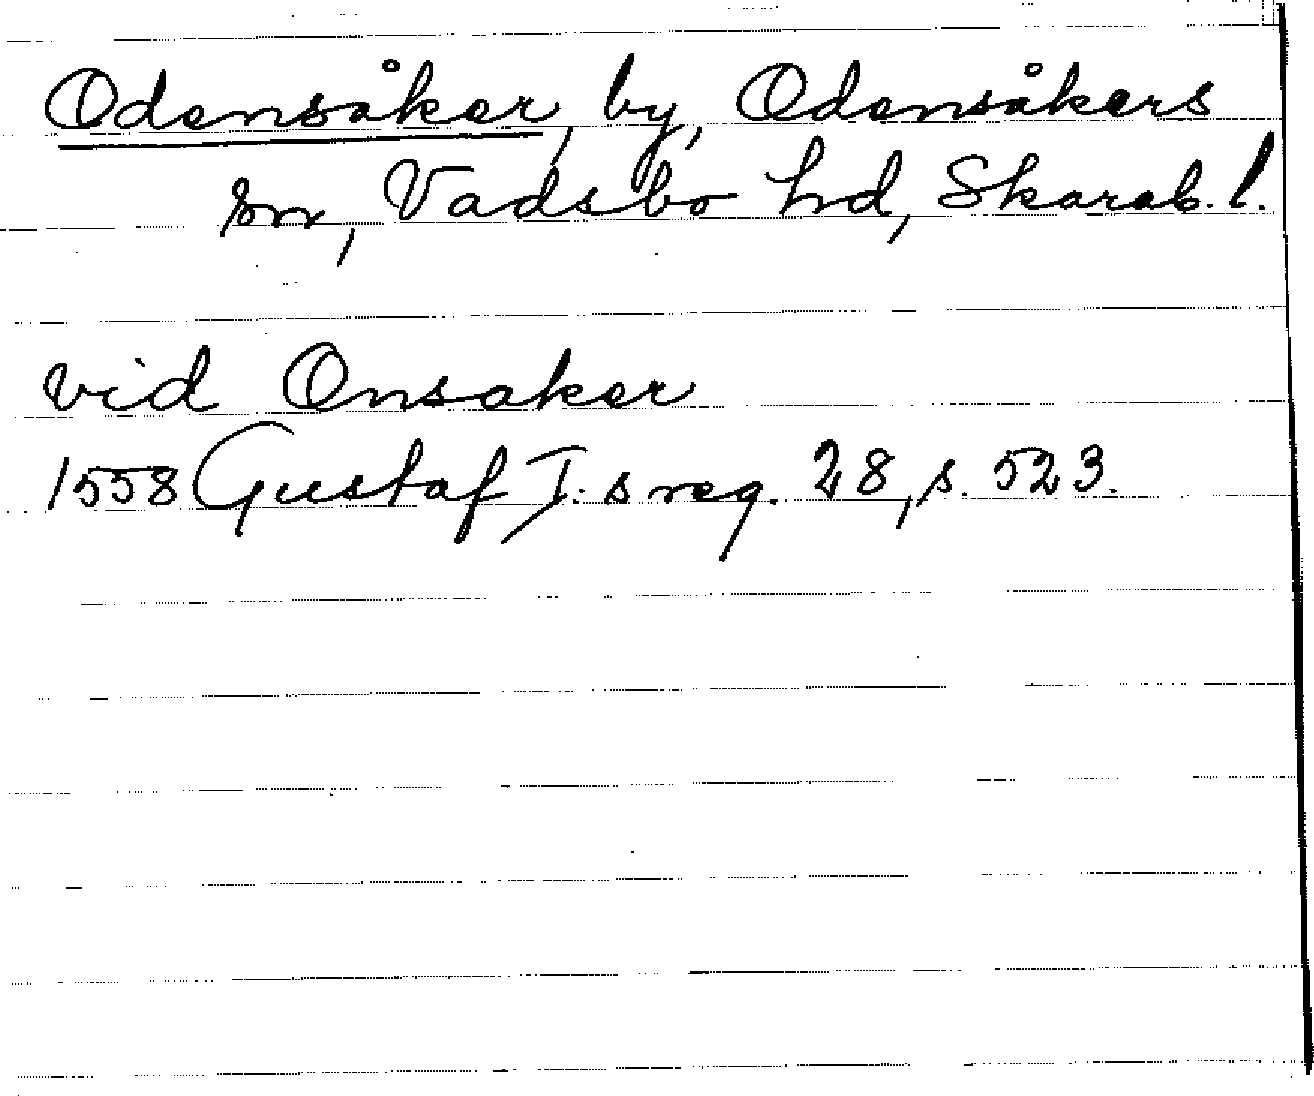 Odensåker, by, Odensåkers
sn, Vadsbo hd, Skarab. l.
vid Onsaker
1558 Gustaf I. s reg. 28, s. 523.